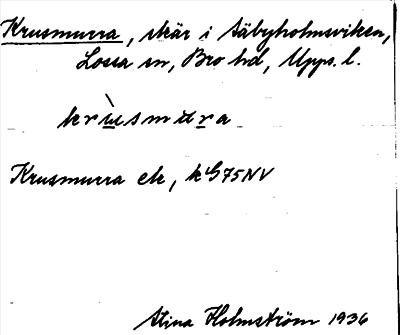 Krusmurra, skär i Säbyholmsviken,
Lossa sn, Bro hd, Upps. l.
krùsmura
Krusmurra ek, k G75NV
Stina Holmström 1936